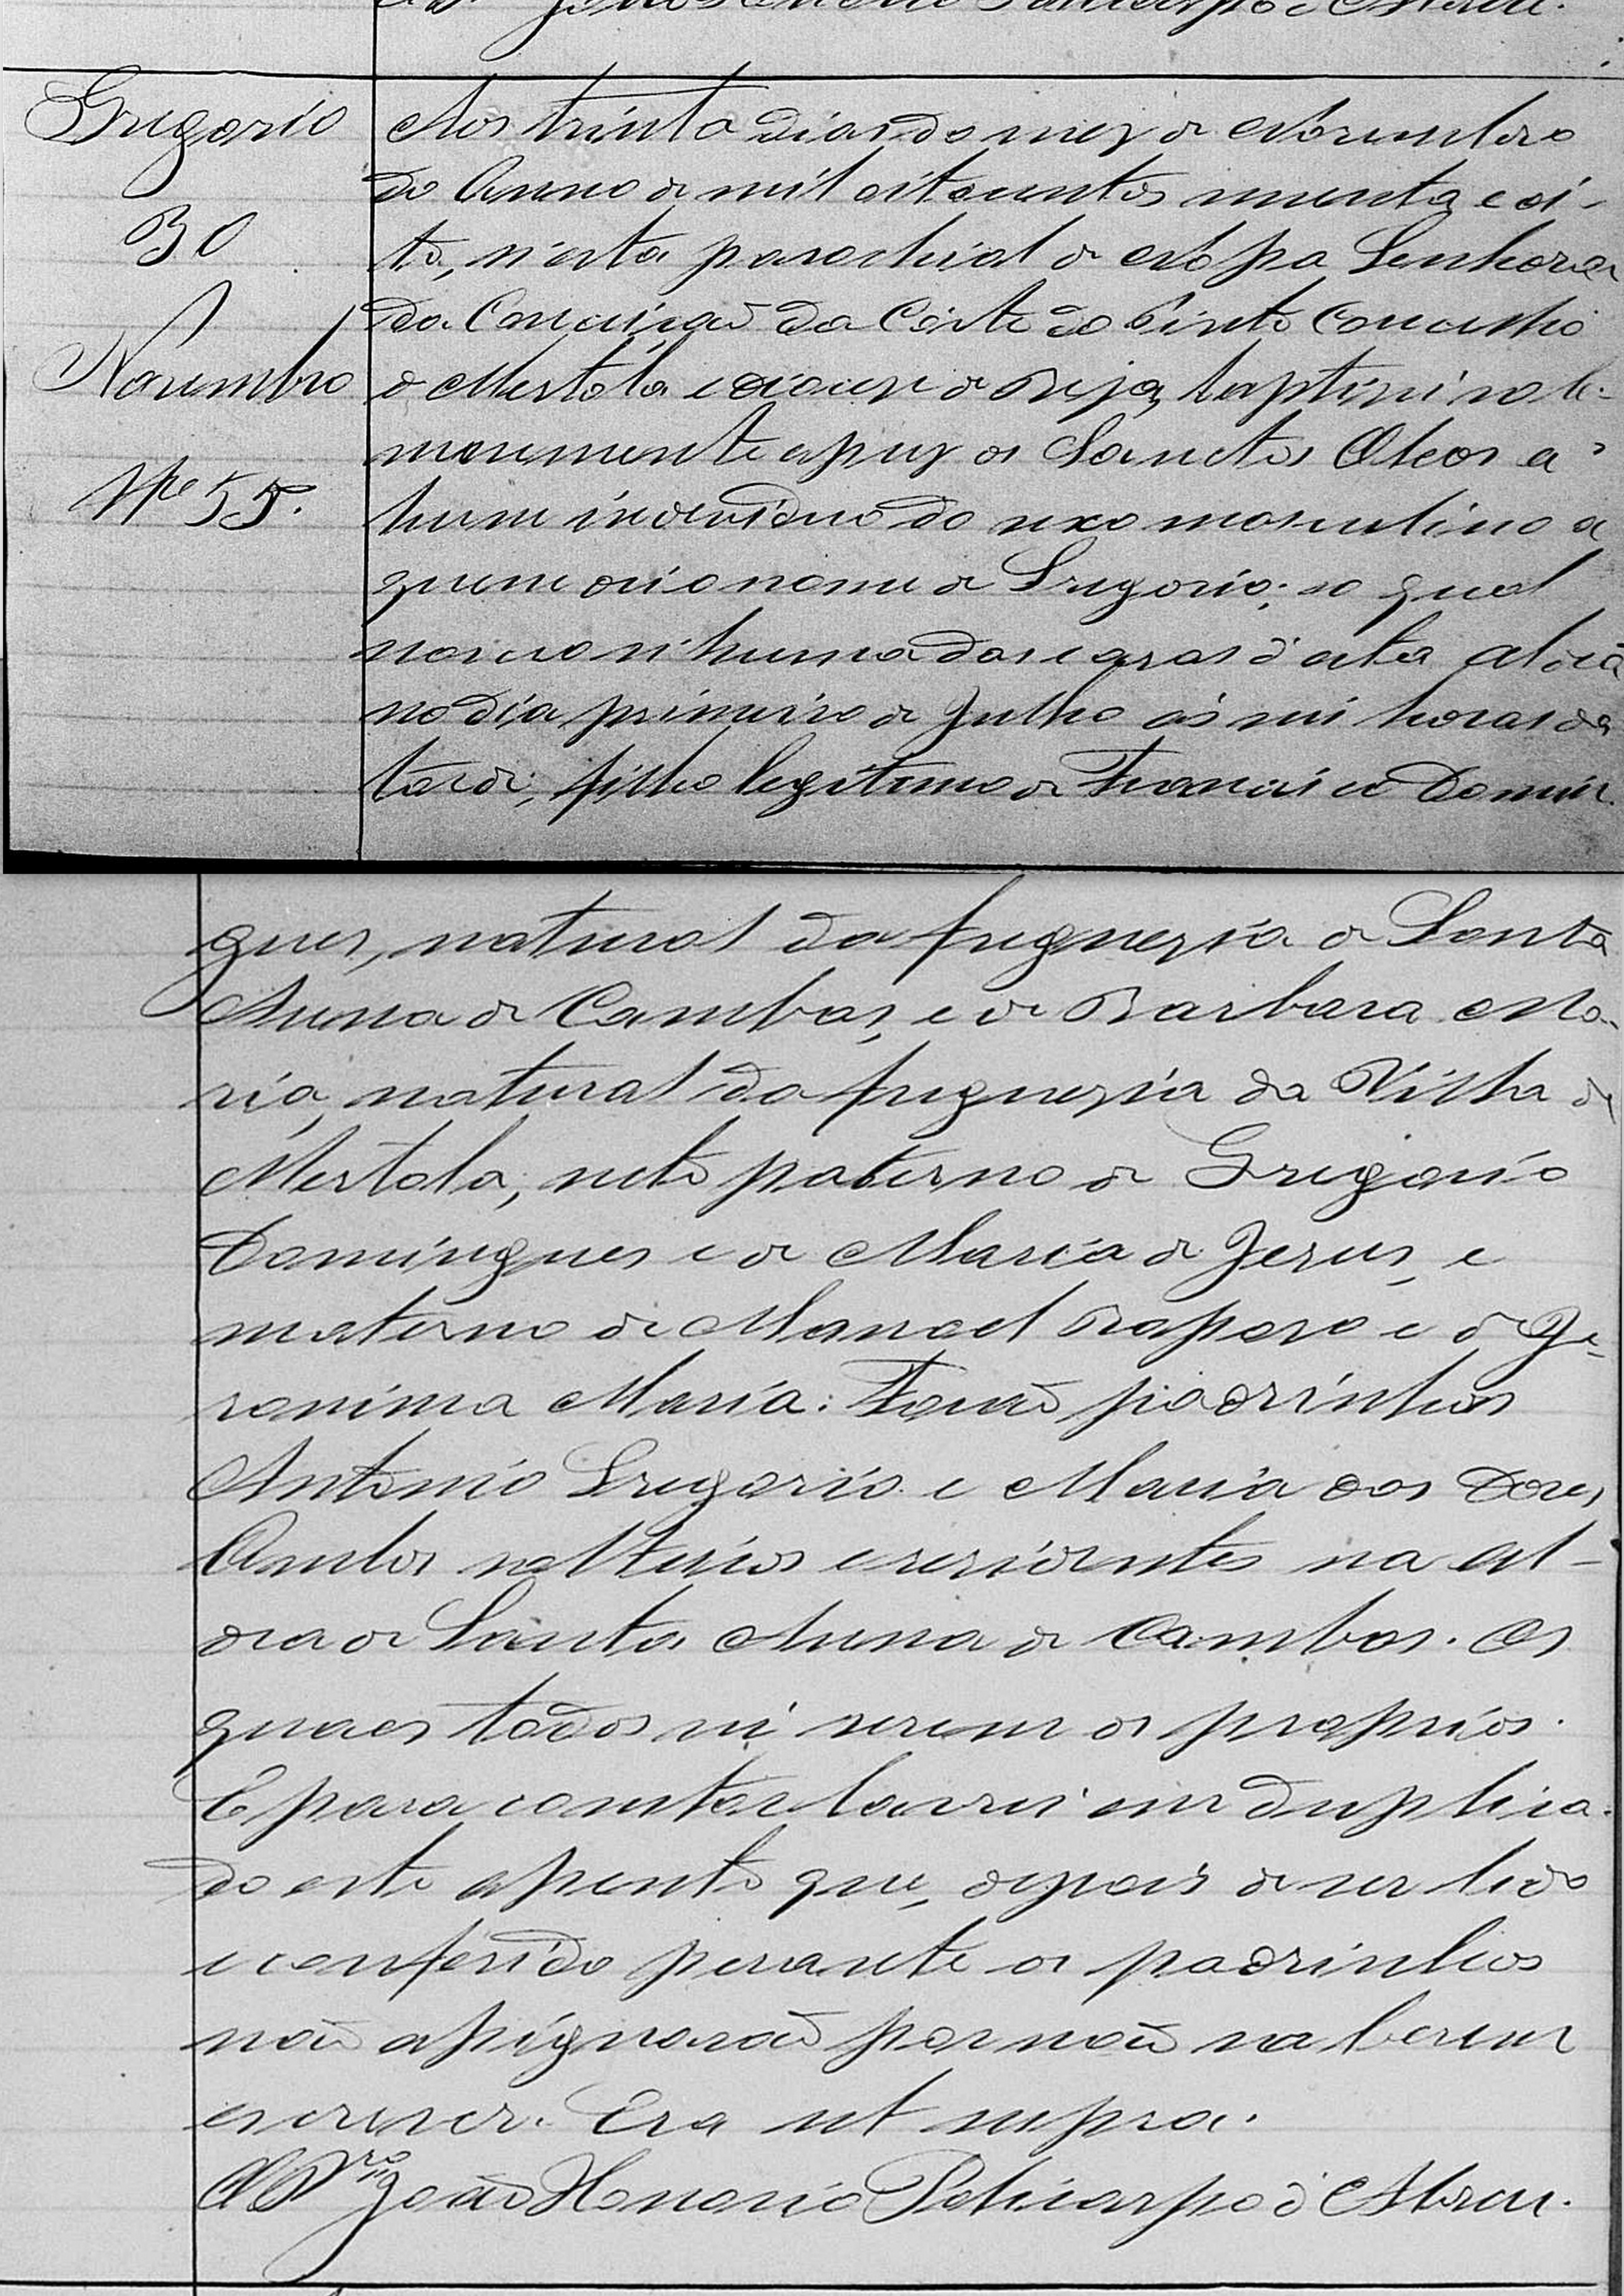 Gregorio
30
Novembro
Nº 55.
Aos trinta dias do mez de Novembro
do Anno de mil oitocentos noventa e oi-
to, n'esta parochial de Nóssa Senhora
da Conceição da Côrte do Pinto Concelho
de Mertola e diocese de Beja, baptizei sole-
mnemente e puz os Sanctos Oleos a
hum individuo do sexo masculino a
quem dei o nome de Gregorio; o qual
nasceo n'huma das casas d'esta aldeia
no dia primeiro de Julho ás seis horas da
tarde; filho legitimo de Francisco Domin
gues, natural da freguezia de Santa
Anna de Cambas, e de Barbara Ma-
ria, natural da freguezia da Villa de
Mertola; neto paterno de Gregorio
Domingues e de Maria de Jesus, e
materno de Manoel Raposo e de Je-
ronima Maria: Forão padrinhos
Antonio Gregorio e Maria das Dores
Ambos solteiros e residentes na al-
deia de Santa Anna de Cambas. Os
quaes todos sei serem os proprios.
E para constar lavrei em duplica-
do este assento que, depois de ser lido
e conferido perante os padrinhos
não assignarão por não saberem
escrever. Era ut supra.
O Prº João Honorio Policarpo d'Abreu.